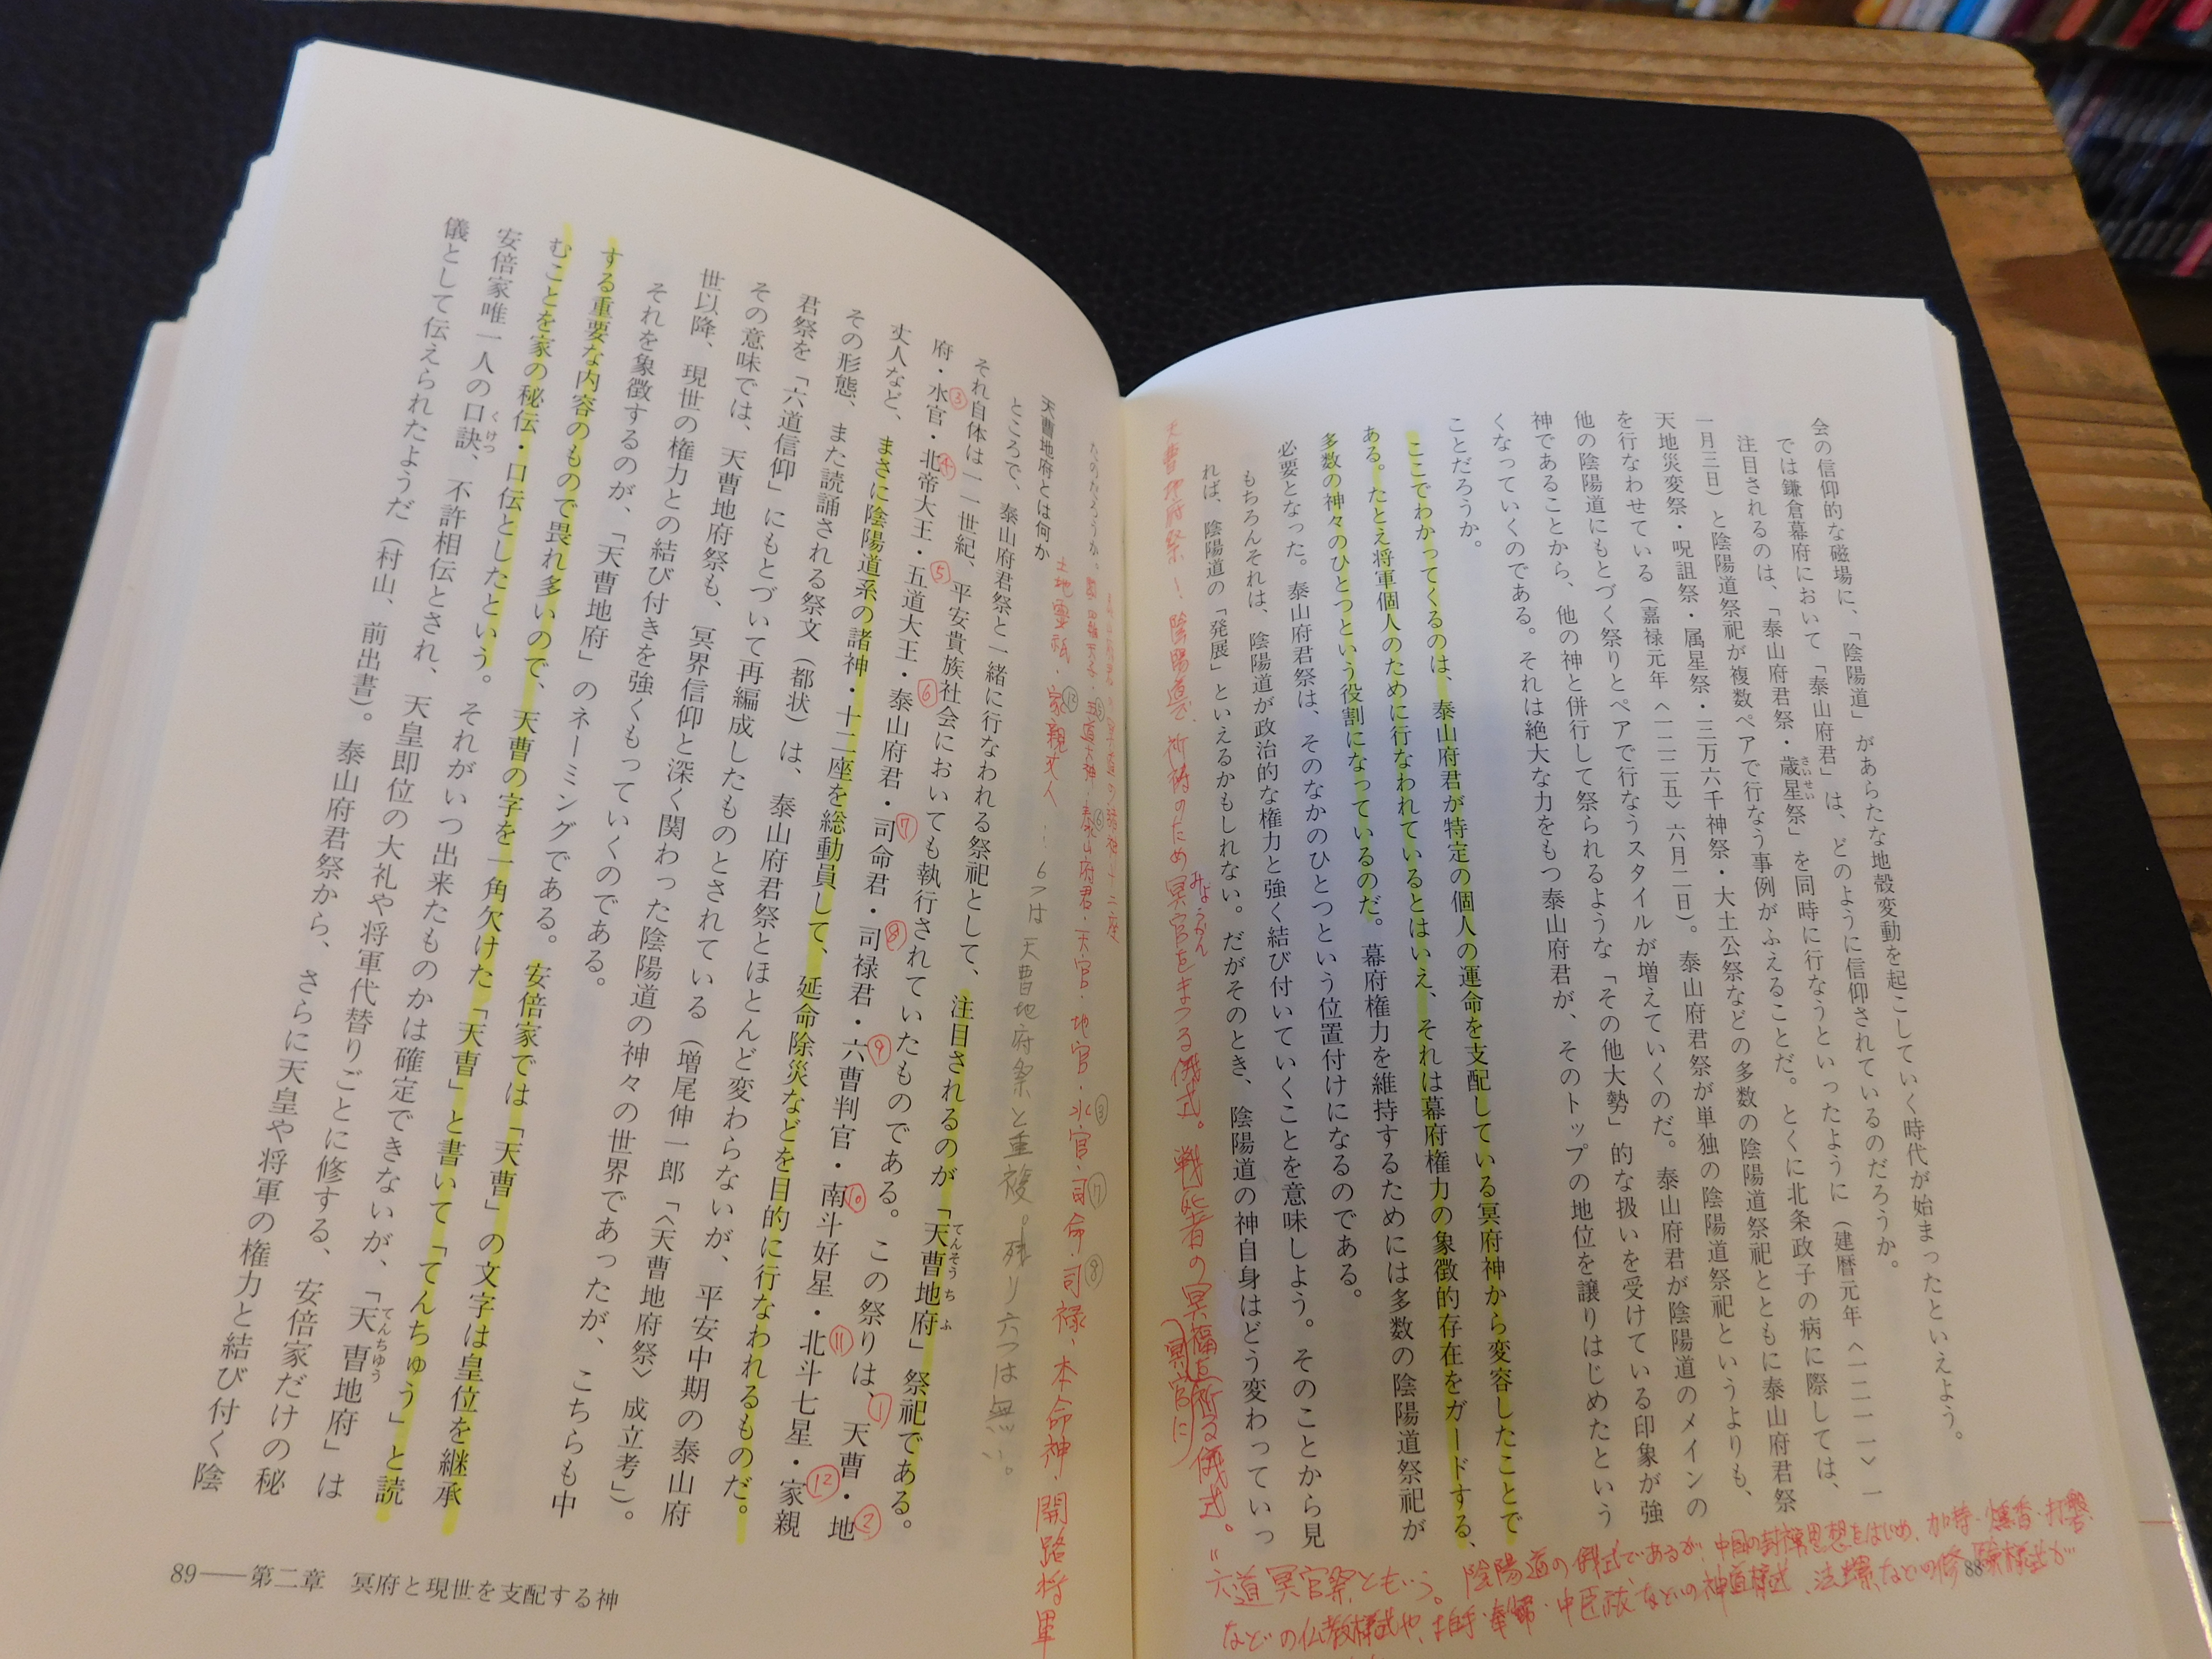 会の信仰的な磁場に、「陰陽道」があらたな地殻変動を起こしていく時代が始まったといえよう。
では鎌倉幕府において「泰山府君」は、どのように信仰されているのだろうか。
注目されるのは、「泰山府君祭・歳星祭」を同時に行なうといったように（建暦元年〈一二一一〉一
さいせい
一月三日）と陰陽道祭祀が複数ペアで行なう事例がふえることだ。とくに北条政子の病に際しては、
天地災変祭・呪詛祭・属星祭・三万六千神祭・大土公祭などの多数の陰陽道祭祀とともに泰山府君祭
を行なわせている（嘉禄元年〈一二二五〉六月二日）。泰山府君祭が単独の陰陽道祭祀というよりも、
他の陰陽道にもとづく祭りとペアで行なうスタイルが増えていくのだ。泰山府君が陰陽道のメインの
神であることから、他の神と併行して祭られるような「その他大勢」的な扱いを受けている印象が強
くなっていくのである。それは絶大な力をもつ泰山府君が、そのトップの地位を譲りはじめたという
ことだろうか。
ここでわかってくるのは、泰山府君が特定の個人の運命を支配している冥府神から変容したことで
ある。たとえ将軍個人のために行なわれているとはいえ、それは幕府権力の象徴的存在をガードする、
多数の神々のひとつという役割になっているのだ。幕府権力を維持するためには多数の陰陽道祭祀が
必要となった。泰山府君祭は、そのなかのひとつという位置付けになるのである。
もちろんそれは、陰陽道が政治的な権力と強く結び付いていくことを意味しよう。そのことから見
れば、陰陽道の「発展」といえるかもしれない。だがそのとき、陰陽道の神自身はどう変わっていっ
天曹地府祭－陰陽道で、祈祷のため冥官をまつる儀式。戦死者の冥福を祈る儀式。
みょうかん
（冥官に）
＝六道冥官祭ともいう。陰陽道の儀式であるが、中国の封禅思想をはじめ、加持・焼香・打磬
などの仏教様式や、拍手・奉幣・中臣祓などの神道様式、法螺などの修験様式が
88
なのだろうか。
天曹地府とは何か
土地霊祇・家親丈人
・泰山府君・天官・地官・水官・司命・司禄・本命神・開路将軍
6つは天曹地府祭と重複。残り六つは無い。
ところで、泰山府君祭と一緒に行なわれる祭祀として、注目されるのが「天曹地府」祭祀である。
てんそうちふ
それ自体は一一世紀、平安貴族社会においても執行されていたものである。この祭りは、①天曹・②地
府・③水官・④北帝大王・⑤五道大王・⑥泰山府君・⑦司命君・⑧司禄君・⑨六曹判官・⑩南斗好星・⑪北斗七星・⑫家親
丈人など、まさに陰陽道系の諸神・十二座を総動員して、延命除災などを目的に行なわれるものだ。
その形態、また読誦される祭文（都状）は、泰山府君祭とほとんど変わらないが、平安中期の泰山府
君祭を「六道信仰」にもとづいて再編成したものとされている（増尾伸一郎「〈天曹地府祭〉成立考」）。
その意味では、天曹地府祭も、冥界信仰と深く関わった陰陽道の神々の世界であったが、こちらも中
世以降、現世の権力との結び付きを強くもっていくのである。
それを象徴するのが、「天曹地府」のネーミングである。安倍家では「天曹」の文字は皇位を継承
する重要な内容のもので畏れ多いので、天曹の字を一角欠けた「天曺」と書いて「てんちゅう」と読
むことを家の秘伝・口伝としたという。それがいつ出来たものかは確定できないが、「天曺地府」は
てんちゅう
安倍家唯一人の口訣、不許相伝とされ、天皇即位の大礼や将軍代替りごとに修する、安倍家だけの秘
くけつ
儀として伝えられたようだ（村山、前出書）。泰山府君祭から、さらに天皇や将軍の権力と結び付く陰
89――第二章　冥府と現世を支配する神